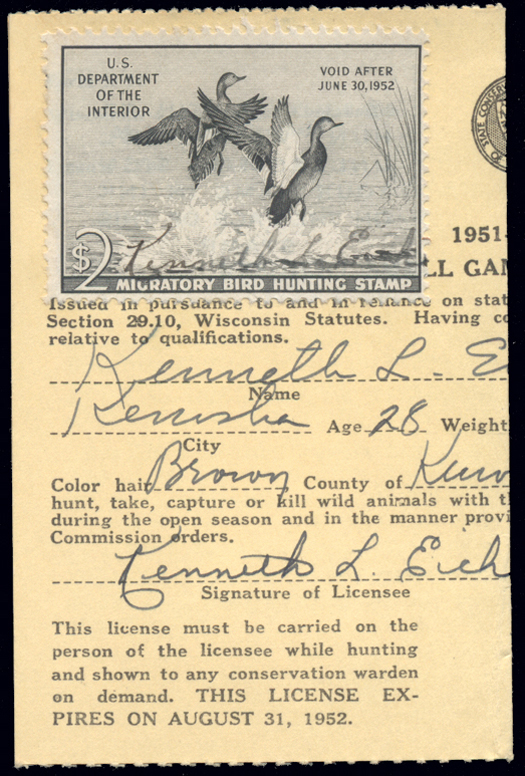 U.S.
DEPARTMENT
OF THE
INTERIOR
VOID AFTER
JUNE 30, 1952
$2
Kenneth L. Eich
MIGRATORY BIRD HUNTING STAMP
STATE CONSERV
1951-
LL GAM
Issued in pursuance to and in reliance on stat
Section 29.10, Wisconsin Statutes. Having co
relative to qualifications.
Kenneth L. E
Name
Kenosha Age 28 Weight
City
Color hair Brown County of Keno
hunt, take, capture or kill wild animals with t
during the open season and in the manner provi
Commission orders.
Kenneth L. Eich
Signature of Licensee
This license must be carried on the
person of the licensee while hunting
and shown to any conservation warden
on demand. THIS LICENSE EX-
PIRES ON AUGUST 31, 1952.